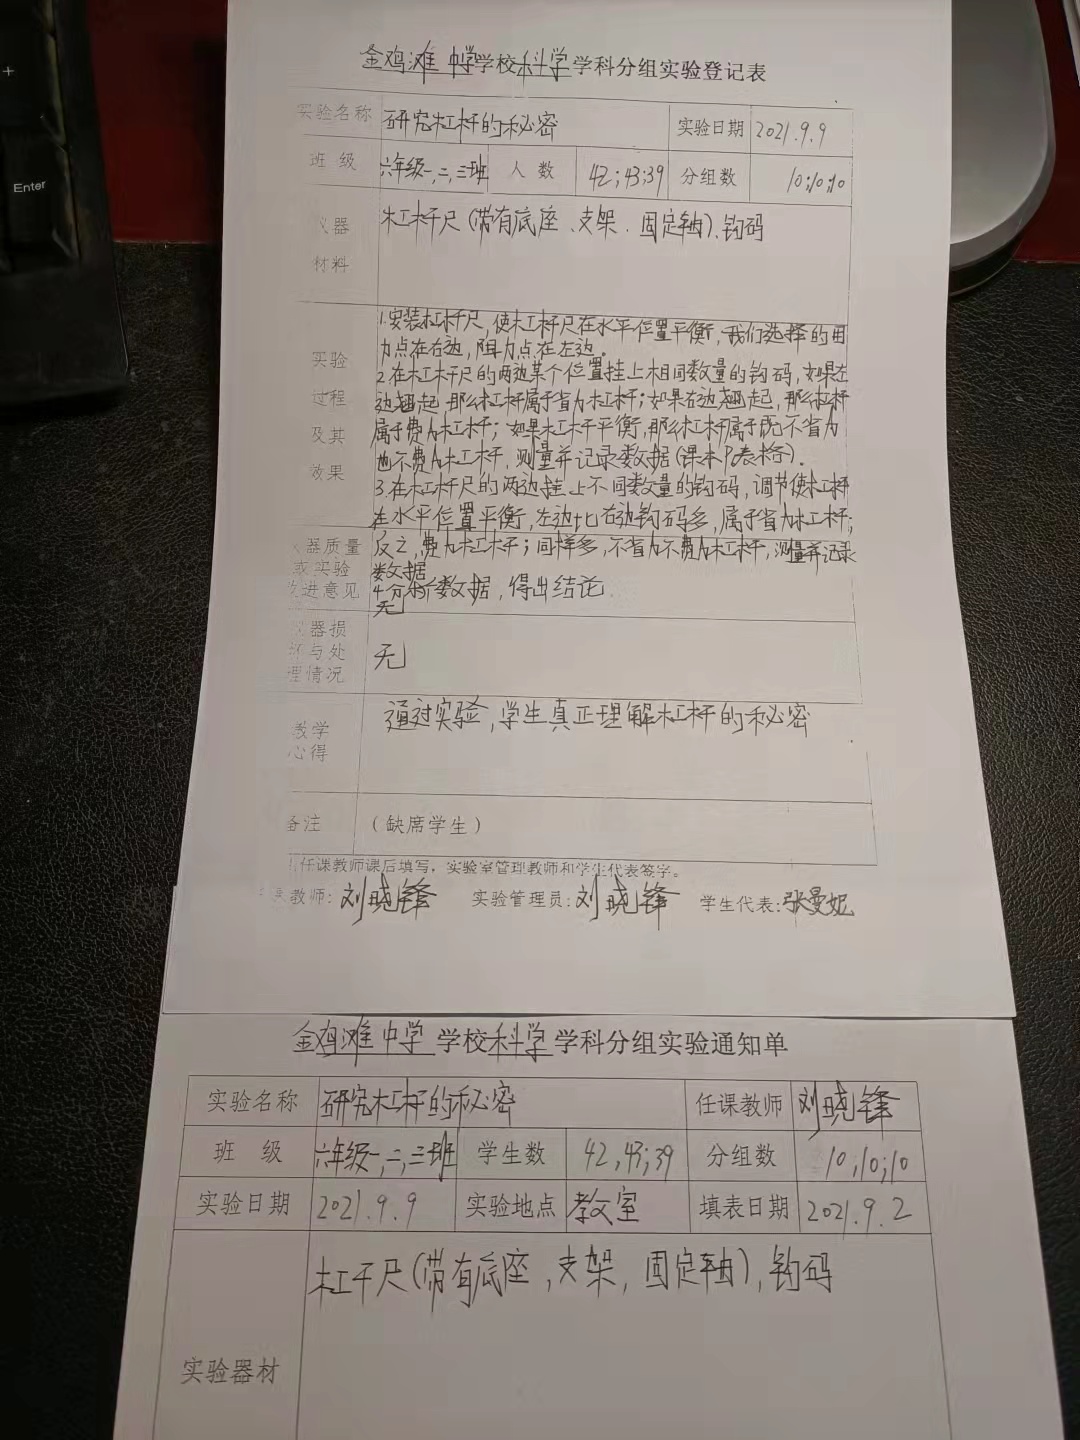 +
Enter
金鸡滩中学学校科学学科分组实验登记表
实验名称 研究杠杆的秘密 实验日期 2021.9.9
班 级 六年级一,二,三班 人 数 42;43;39 分组数 10;10;10
仪器
材料
杠杆尺(带有底座、支架、固定轴)、钩码
实验
过程
及其
效果
1.安装杠杆尺,使杠杆尺在水平位置平衡,我们选择的用
力点在右边,阻力点在左边。
2.在杠杆尺的两边某个位置挂上相同数量的钩码,如果左
边翘起 那么杠杆属于省力杠杆;如果右边翘起,那么杠杆
属于费力杠杆;如果杠杆平衡,那么杠杆属于既不省力
也不费力杠杆,测量并记录数据(课本P表格).
3.在杠杆尺的两边挂上不同数量的钩码,调节使杠杆
在水平位置平衡,左边比右边钩码多,属于省力杠杆;
反之,费力杠杆;同样多,不省力不费力杠杆,测量并记录
数据
4分析数据,得出结论.
仪器质量
或实验
改进意见
无
仪器损
坏与处
理情况
无
教学
心得
通过实验,学生真正理解杠杆的秘密
备注 (缺席学生)
任课教师课后填写,实验室管理教师和学生代表签字。
教师:刘晓锋 实验管理员:刘晓锋 学生代表:张曼妮
金鸡滩中学 学校科学学科分组实验通知单
实验名称 研究杠杆的秘密 任课教师 刘晓锋
班 级 六年级一,二,三班 学生数 42,43;39 分组数 10,10;10
实验日期 2021.9.9 实验地点 教室 填表日期 2021.9.2
实验器材
杠干尺(带有底座,支架,固定轴),钩码